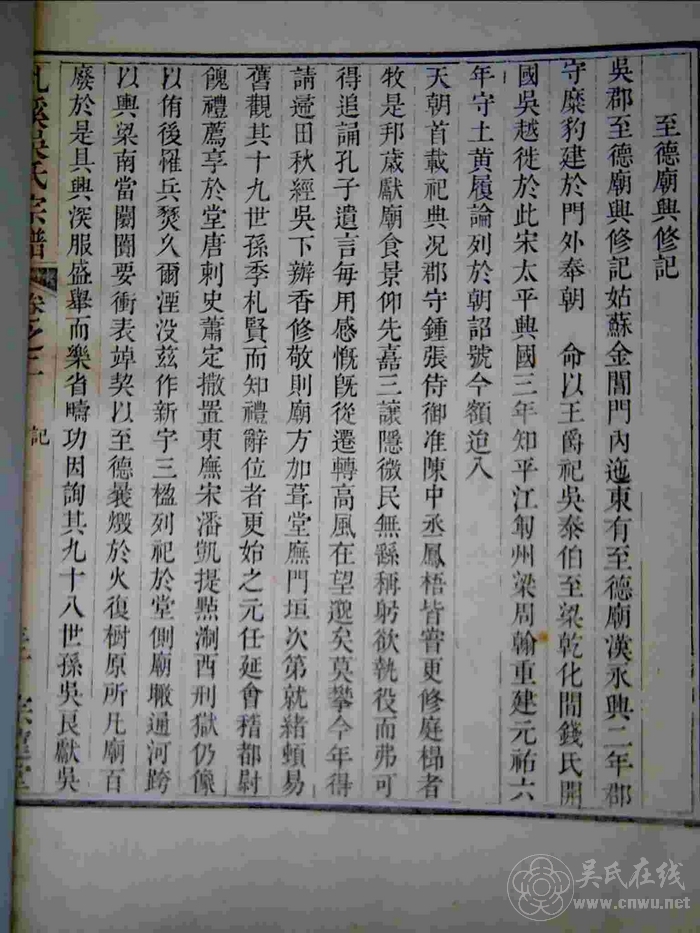 至德廟興修記
吳郡至德廟興修記姑蘇金閶門內迤東有至德廟漢永興二年郡
守糜豹建於門外奉朝 命以王爵祀吳泰伯至梁乾化間錢氏開
國吳越徙於此宋太平興國三年知平江軍州梁周翰重建元祐六
年守土黃履論列於朝詔號今額迨入
天朝首載祀典况郡守鍾張侍御准陳中丞鳳梧皆嘗更修庭楊者
牧是邦歲獻廟食景仰先嘉三讓隱微民無繇稱躬欲執役而弗可
得追誦孔子遺言每用感慨旣從遷轉高風在望邈矣莫攀今年得
請遄田秋經吳下辦香修敬則廟方加葺堂廡門垣次第就緒頓易
舊觀其十九世孫季札賢而知禮辭位者更始之元任延會稽都尉
餽禮薦享於堂唐刺史蕭定撤置東廡宋潘凱提點浙西刑獄仍像
以侑後罹兵燹久爾湮没茲作新宇三楹列祀於堂側廟墩通河跨
以輿梁南當闤闠要衝表綽契以至德曩燬於火復樹原所凡廟百
廢於是具興深服盛舉而樂省疇功因詢其九十八世孫吳良獻吳
溪吳氏宗譜 卷之二 記
吴氏在线
www.cnwu.net